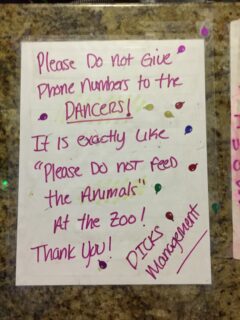 Please Do not Give
Phone Numbers to the
DANCERS!
It is exactly Like
"Please DO not Feed
the Animals"
At the Zoo!
Thank You!
DICKS
Management